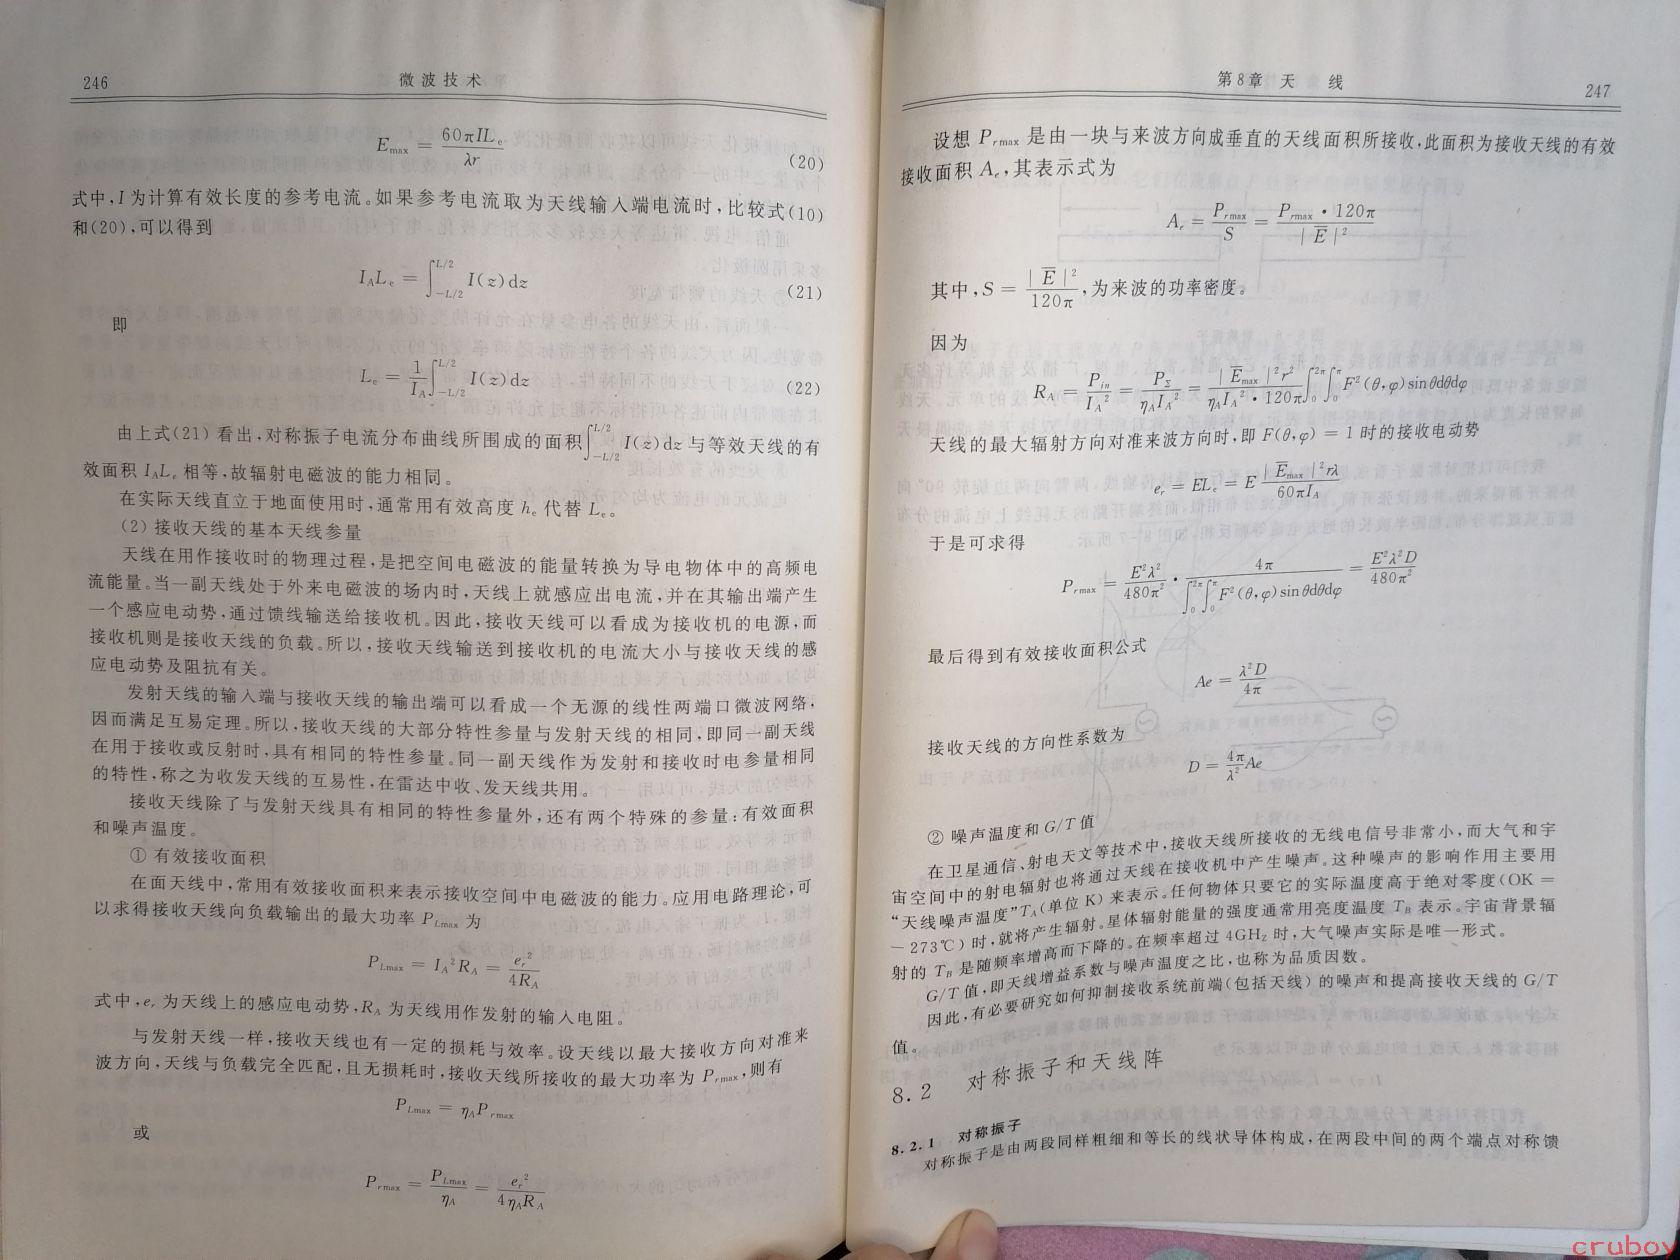 246
微波技术
E_max = 60πIL_e / λr (20)
式中,I为计算有效长度的参考电流。如果参考电流取为天线输入端电流时,比较式(10)
和(20),可以得到
I_A L_e = ∫_{-L/2}^{L/2} I(z)dz (21)
即
L_e = 1/I_A ∫_{-L/2}^{L/2} I(z)dz (22)
由上式(21)看出,对称振子电流分布曲线所围成的面积∫_{-L/2}^{L/2} I(z)dz与等效天线的有
效面积 I_A L_e 相等,故辐射电磁波的能力相同。
在实际天线直立于地面使用时,通常用有效高度 h_e 代替 L_e。
(2) 接收天线的基本天线参量
天线在用作接收时的物理过程,是把空间电磁波的能量转换为导电物体中的高频电
流能量。当一副天线处于外来电磁波的场内时,天线上就感应出电流,并在其输出端产生
一个感应电动势,通过馈线输送给接收机。因此,接收天线可以看成为接收机的电源,而
接收机则是接收天线的负载。所以,接收天线输送到接收机的电流大小与接收天线的感
应电动势及阻抗有关。
发射天线的输入端与接收天线的输出端可以看成一个无源的线性两端口微波网络,
因而满足互易定理。所以,接收天线的大部分特性参量与发射天线的相同,即同一副天线
在用于接收或反射时,具有相同的特性参量。同一副天线作为发射和接收时电参量相同
的特性,称之为收发天线的互易性,在雷达中收、发天线共用。
接收天线除了与发射天线具有相同的特性参量外,还有两个特殊的参量:有效面积
和噪声温度。
① 有效接收面积
在面天线中,常用有效接收面积来表示接收空间中电磁波的能力。应用电路理论,可
以求得接收天线向负载输出的最大功率 P_Lmax 为
P_Lmax = I_A² R_A = e_r² / 4R_A
式中,e_r 为天线上的感应电动势,R_A 为天线用作发射的输入电阻。
与发射天线一样,接收天线也有一定的损耗与效率。设天线以最大接收方向对准来
波方向,天线与负载完全匹配,且无损耗时,接收天线所接收的最大功率为 P_rmax,则有
P_Lmax = η_A P_rmax
或
P_rmax = P_Lmax / η_A = e_r² / 4η_A R_A
第8章 天 线
247
设想 P_rmax 是由一块与来波方向成垂直的天线面积所接收,此面积为接收天线的有效
接收面积 A_e,其表示式为
A_e = P_rmax / S = P_rmax · 120π / |E̅|²
其中,S = |E̅|² / 120π,为来波的功率密度。
因为
R_A = P_in / I_A² = P_Σ / η_A I_A² = |E̅_max|² r² / η_A I_A² · 120π ∫_0^{2π} ∫_0^π F²(θ,φ) sinθdθdφ
天线的最大辐射方向对准来波方向时,即 F(θ,φ) = 1 时的接收电动势
e_r = EL_e = E |E̅_max|² rλ / 60πI_A
于是可求得
P_rmax = E²λ² / 480π² · 4π / ∫_0^{2π} ∫_0^π F²(θ,φ) sinθdθdφ = E²λ²D / 480π²
最后得到有效接收面积公式
Ae = λ²D / 4π
接收天线的方向性系数为
D = 4π/λ² Ae
② 噪声温度和 G/T 值
在卫星通信、射电天文等技术中,接收天线所接收的无线电信号非常小,而大气和宇
宙空间中的射电辐射也将通过天线在接收机中产生噪声。这种噪声的影响作用主要用
“天线噪声温度”T_A(单位 K) 来表示。任何物体只要它的实际温度高于绝对零度(OK =
-273℃) 时,就将产生辐射。星体辐射能量的强度通常用亮度温度 T_B 表示。宇宙背景辐
射的 T_B 是随频率增高而下降的。在频率超过 4GHz 时,大气噪声实际是唯一形式。
G/T 值,即天线增益系数与噪声温度之比,也称为品质因数。
因此,有必要研究如何抑制接收系统前端(包括天线) 的噪声和提高接收天线的 G/T
值。
8.2 对称振子和天线阵
8.2.1 对称振子
对称振子是由两段同样粗细和等长的线状导体构成,在两段中间的两个端点对称馈
cruboy